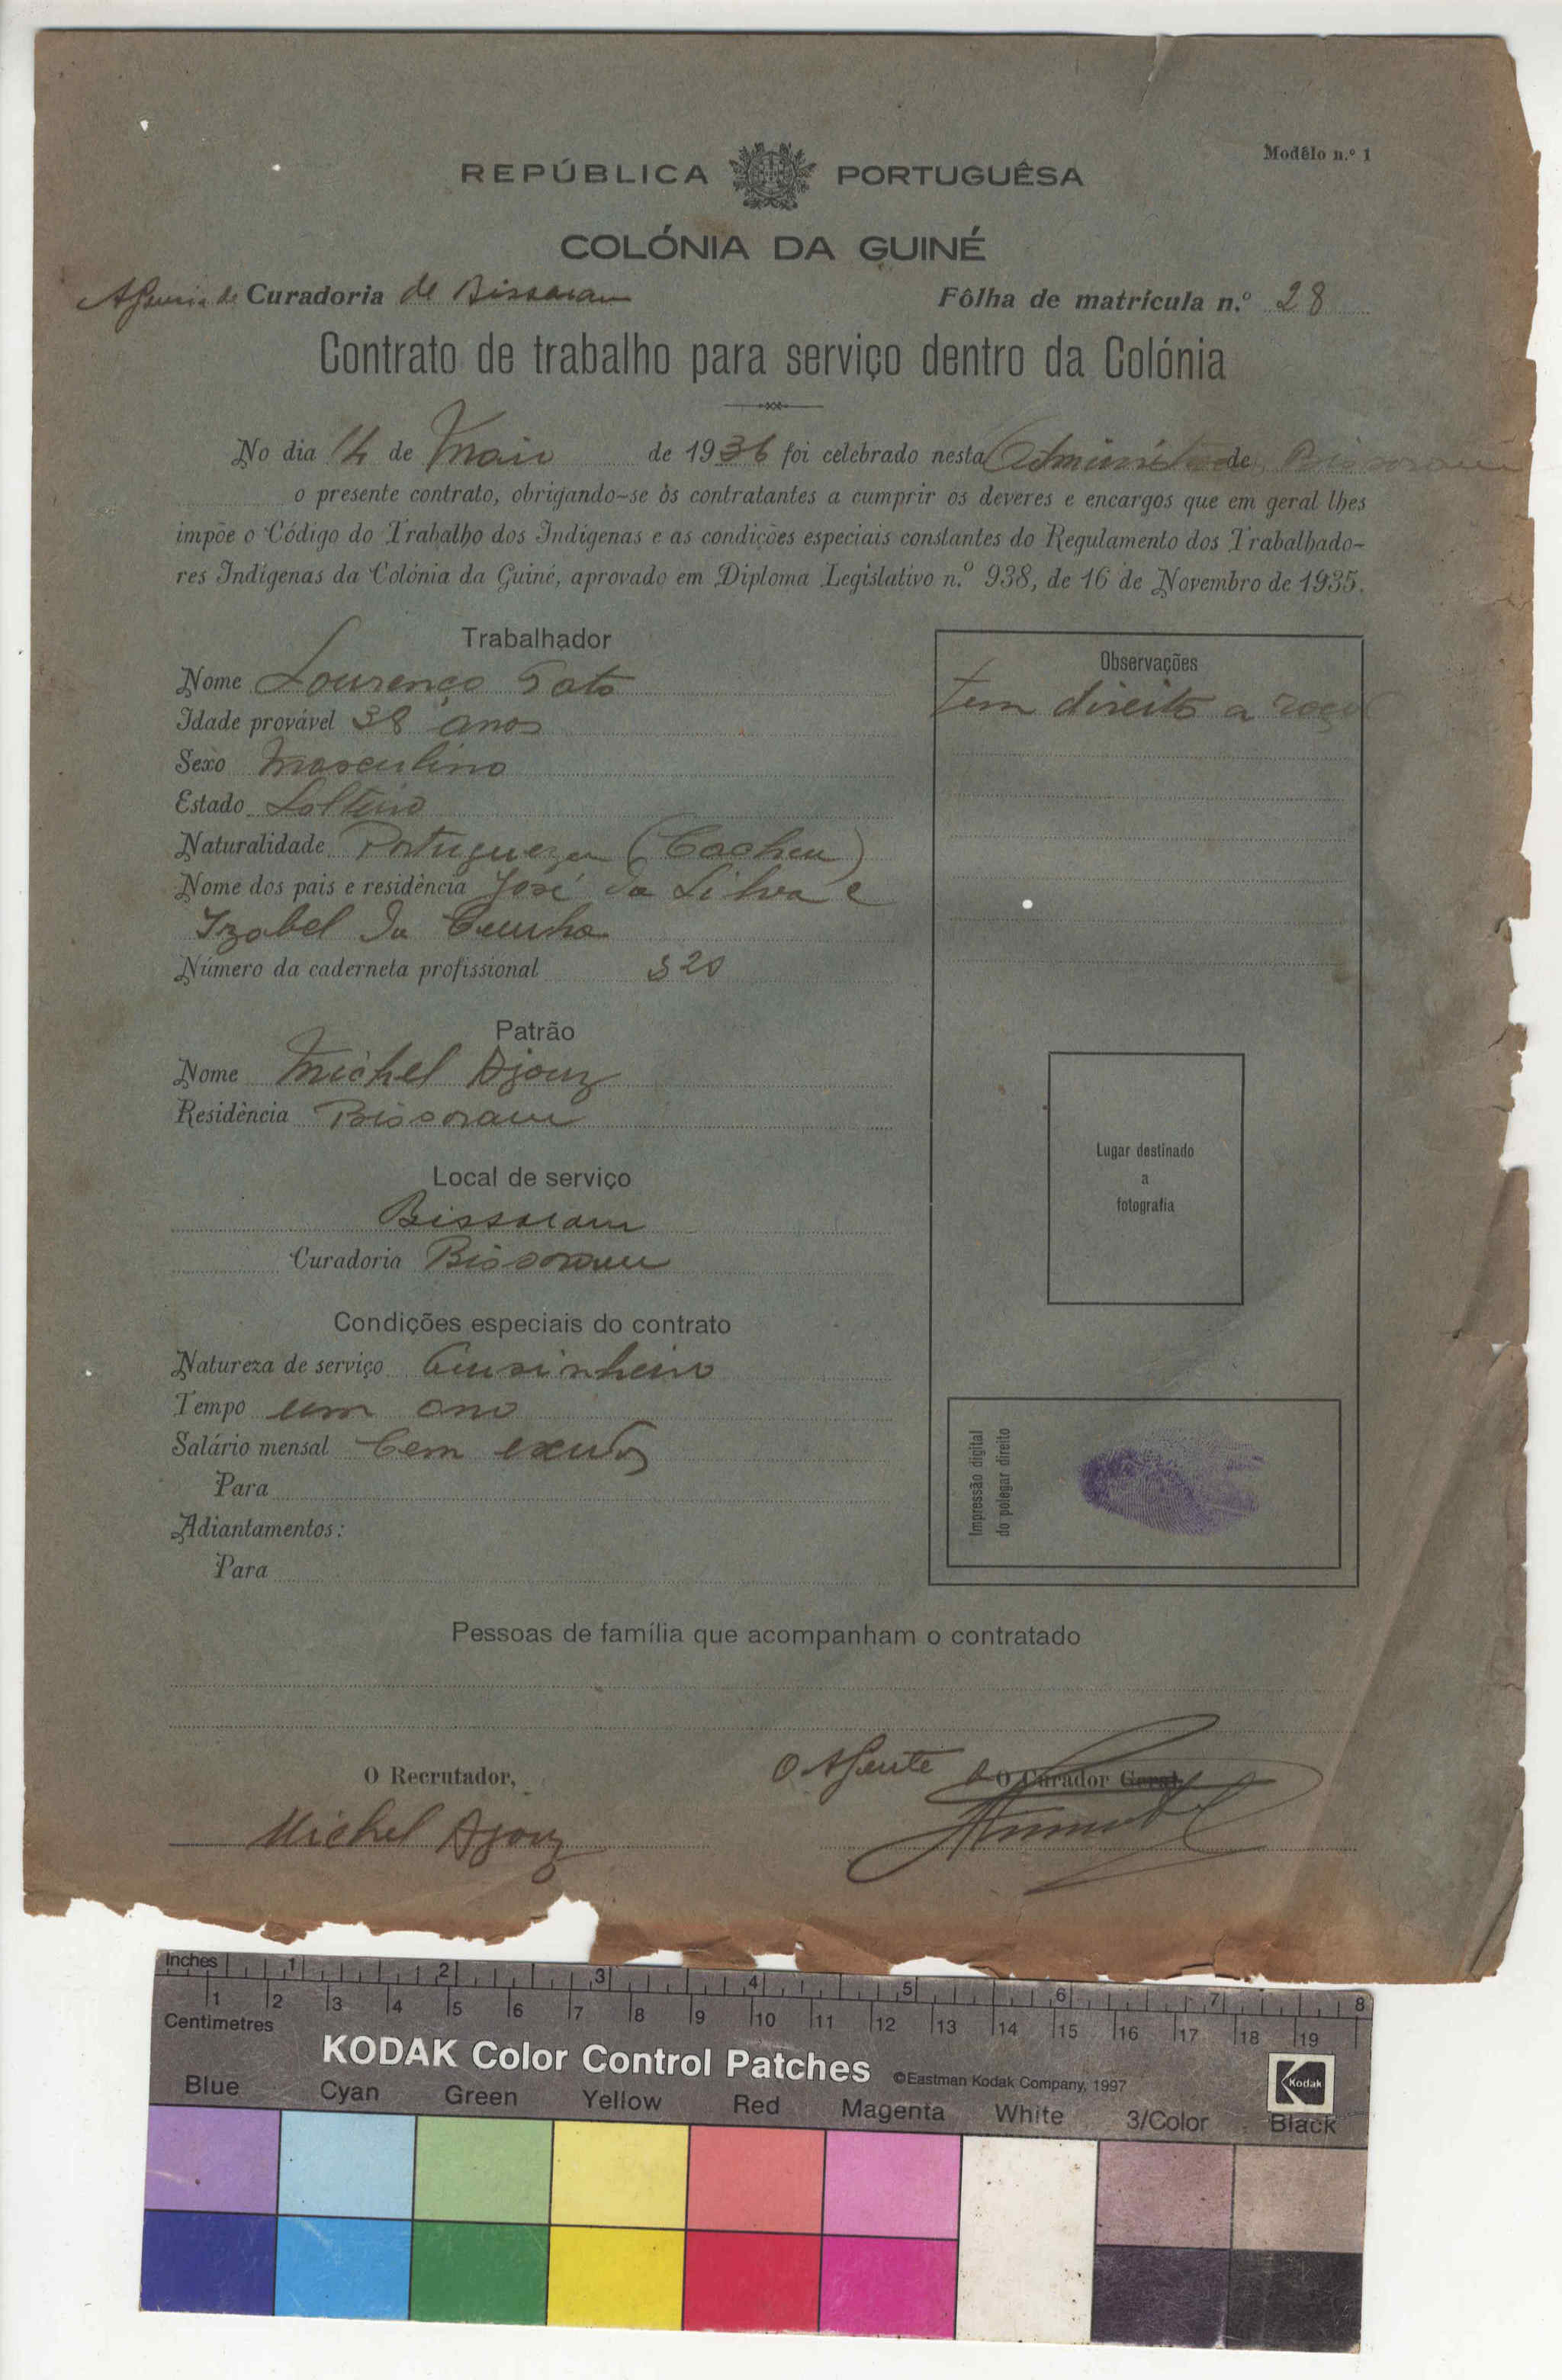 Modêlo n.º 1
REPÚBLICA PORTUGUÊSA
COLÓNIA DA GUINÉ
Agencia de Curadoria de Bissoram Fôlha de matrícula n.º 28
Contrato de trabalho para serviço dentro da Colónia
No dia 14 de Maio de 1936 foi celebrado nesta de Bissoram
o presente contrato, obrigando-se os contratantes a cumprir os deveres e encargos que em geral lhes
impõe o Código do Trabalho dos Indígenas e as condições especiais constantes do Regulamento dos Trabalhado-
res Indígenas da Colónia da Guiné, aprovado em Diploma Legislativo n.º 938, de 16 de Novembro de 1935.
Trabalhador
Nome Lourenço
Idade provável 38 anos
Sexo Masculino
Estado Solteiro
Naturalidade Portugueza (Cacheu)
Nome dos pais e residência José da Silva e
Izabel da Cunha
Número da caderneta profissional 320
Observações
tem direito a
Patrão
Nome Michel Ajouz
Residência Bissoram
Lugar destinado
a
fotografia
Local de serviço
Bissoram
Curadoria Bissoram
Condições especiais do contrato
Natureza de serviço Cusinheiro
Tempo um ano
Salário mensal Cem escudos
Para
Adiantamentos:
Para
Impressão digital
do polegar direito
Pessoas de família que acompanham o contratado
O Recrutador,
O Agente do O Curador Geral
Michel Ajouz
Inches 1 2 3 4 5 6 7 8
1 2 3 4 5 6 7 8 9 10 11 12 13 14 15 16 17 18 19
Centimetres
KODAK Color Control Patches ©Eastman Kodak Company, 1997 Kodak
Blue Cyan Green Yellow Red Magenta White 3/Color Black